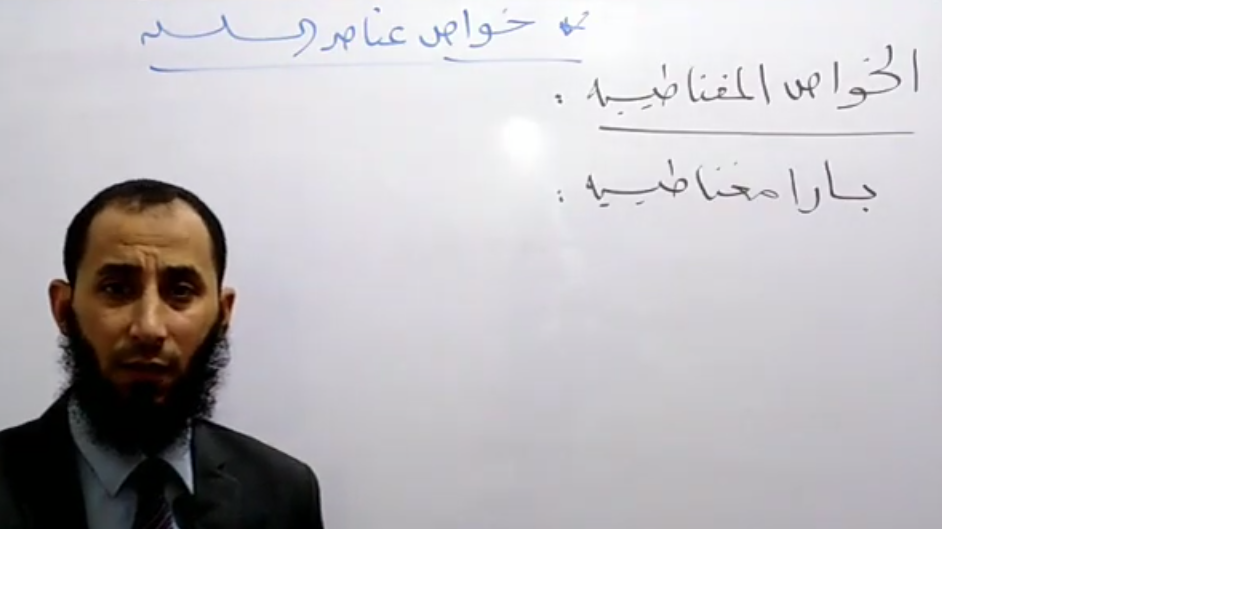 * خواص عناصر السلسله
الخواص المغناطيسيه :
بارا مغناطيسيه :